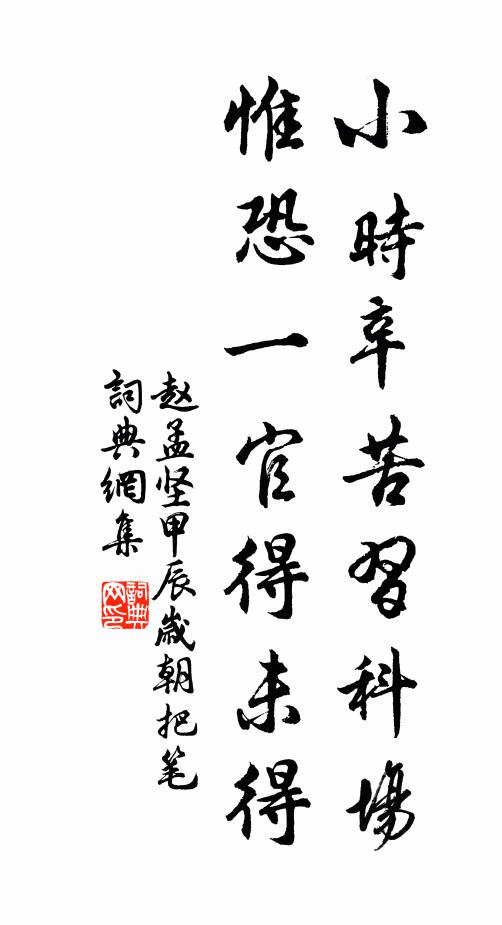 小時辛苦習科場
惟恐一官得未得
赵孟坚甲辰歲朝把笔
詞典網集
詞典網印